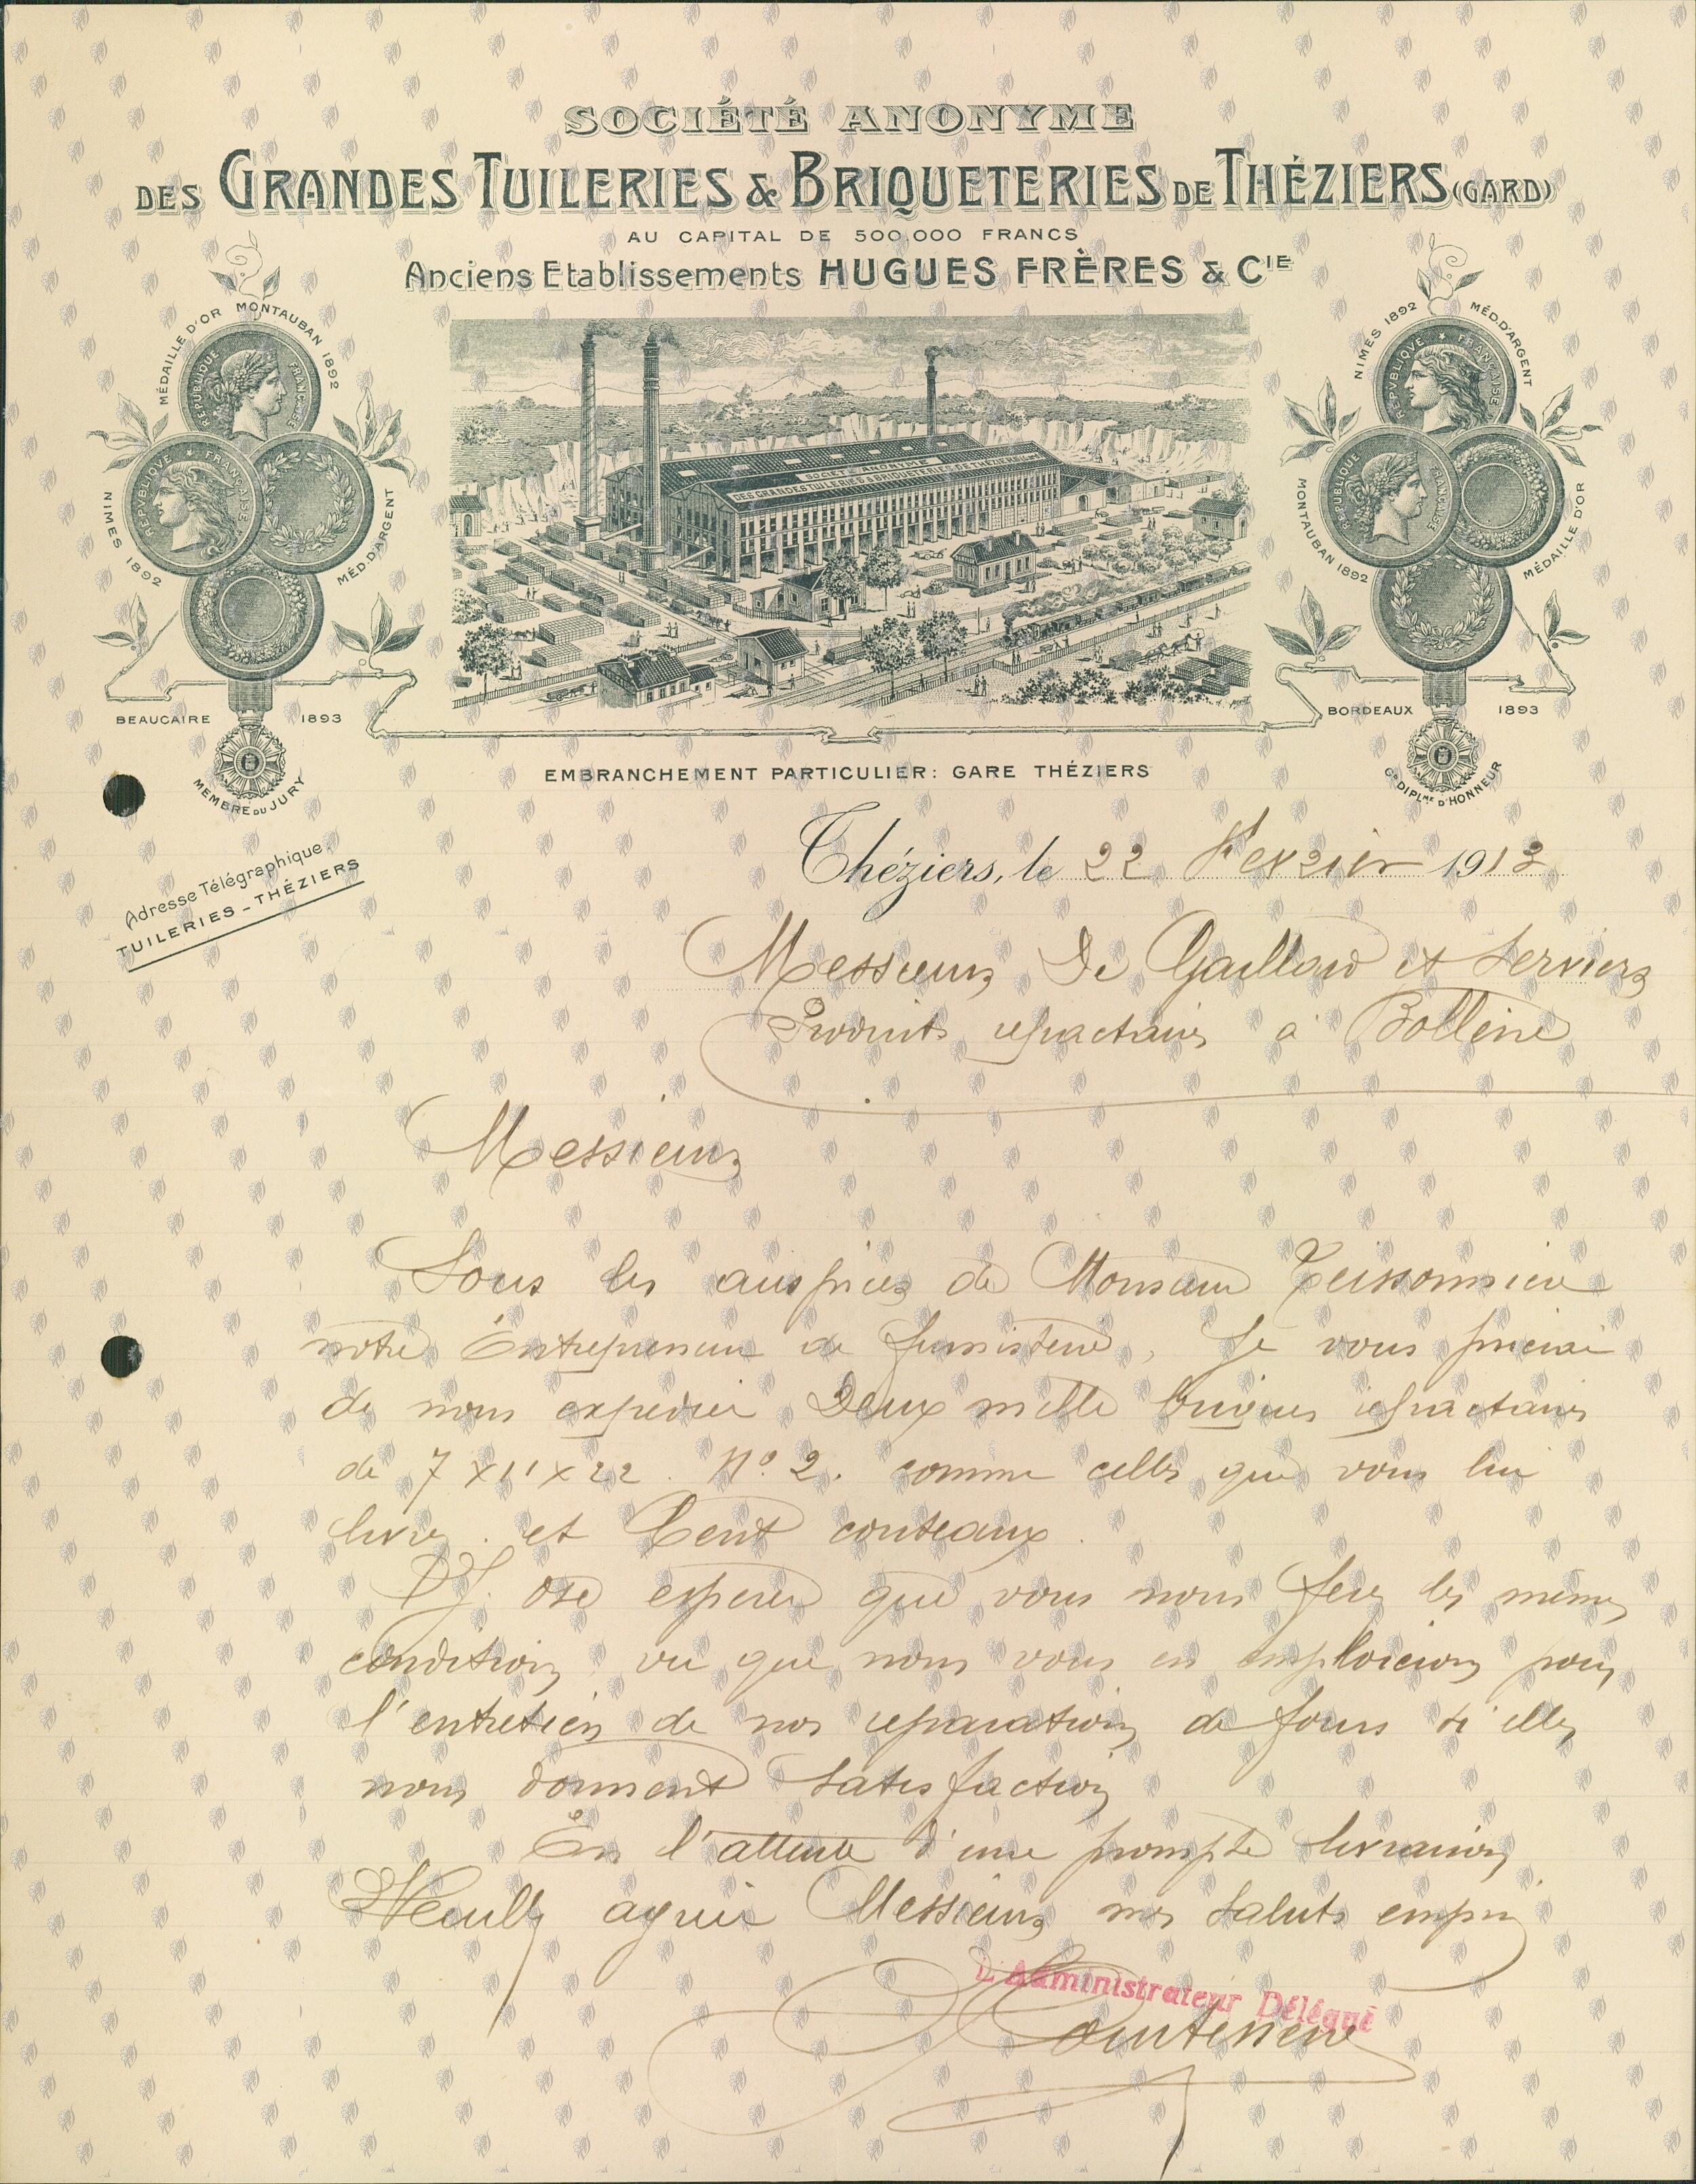 SOCIÉTÉ ANONYME
DES GRANDES TUILERIES & BRIQUETERIES DE THÉZIERS (GARD)
AU CAPITAL DE 500.000 FRANCS
Anciens Etablissements HUGUES FRÈRES & CIE
MÉDAILLE D'OR MONTAUBAN 1892
REPUBLIQUE FRANÇAISE
REPVBLIQVE * FRANÇAISE
NIMES 1892
MÉD. D'ARGENT
BEAUCAIRE 1893
MEMBRE DU JURY
SOCIÉTÉ ANONYME
DES GRANDES TUILERIES & BRIQUETERIES DE THÉZIERS
NIMES 1892 MÉD. D'ARGENT
REPVBLIQVE * FRANÇAISE
REPUBLIQUE FRANÇAISE
MONTAUBAN 1892
MÉDAILLE D'OR
BORDEAUX 1893
GD DIPLME D'HONNEUR
EMBRANCHEMENT PARTICULIER: GARE THÉZIERS
Adresse Télégraphique:
TUILERIES-THÉZIERS
Théziers, le 22 Fevrier 191
Messieurs De Gaillard et Serviers
Produits refractaires à Bollène
Messieurs
Sous les auspices de Monsieur Teissonnière
notre Entrepreneur de fumisterie, Je vous prierai
de nous expedier Deux mille briques refractaires
de 7 x 11 x 22. N° 2. comme celles que vous lui
livrez. et Cent couteaux.
J. ose esperer que vous nous ferez les mêmes
conditions vu que nous vous en emploierons pour
l'entretien de nos reparations de fours si elles
nous donnent satisfaction
En l'attente d'une prompte livraison,
Veuillez agréer Messieurs nos saluts empres
L'Administrateur Délégué